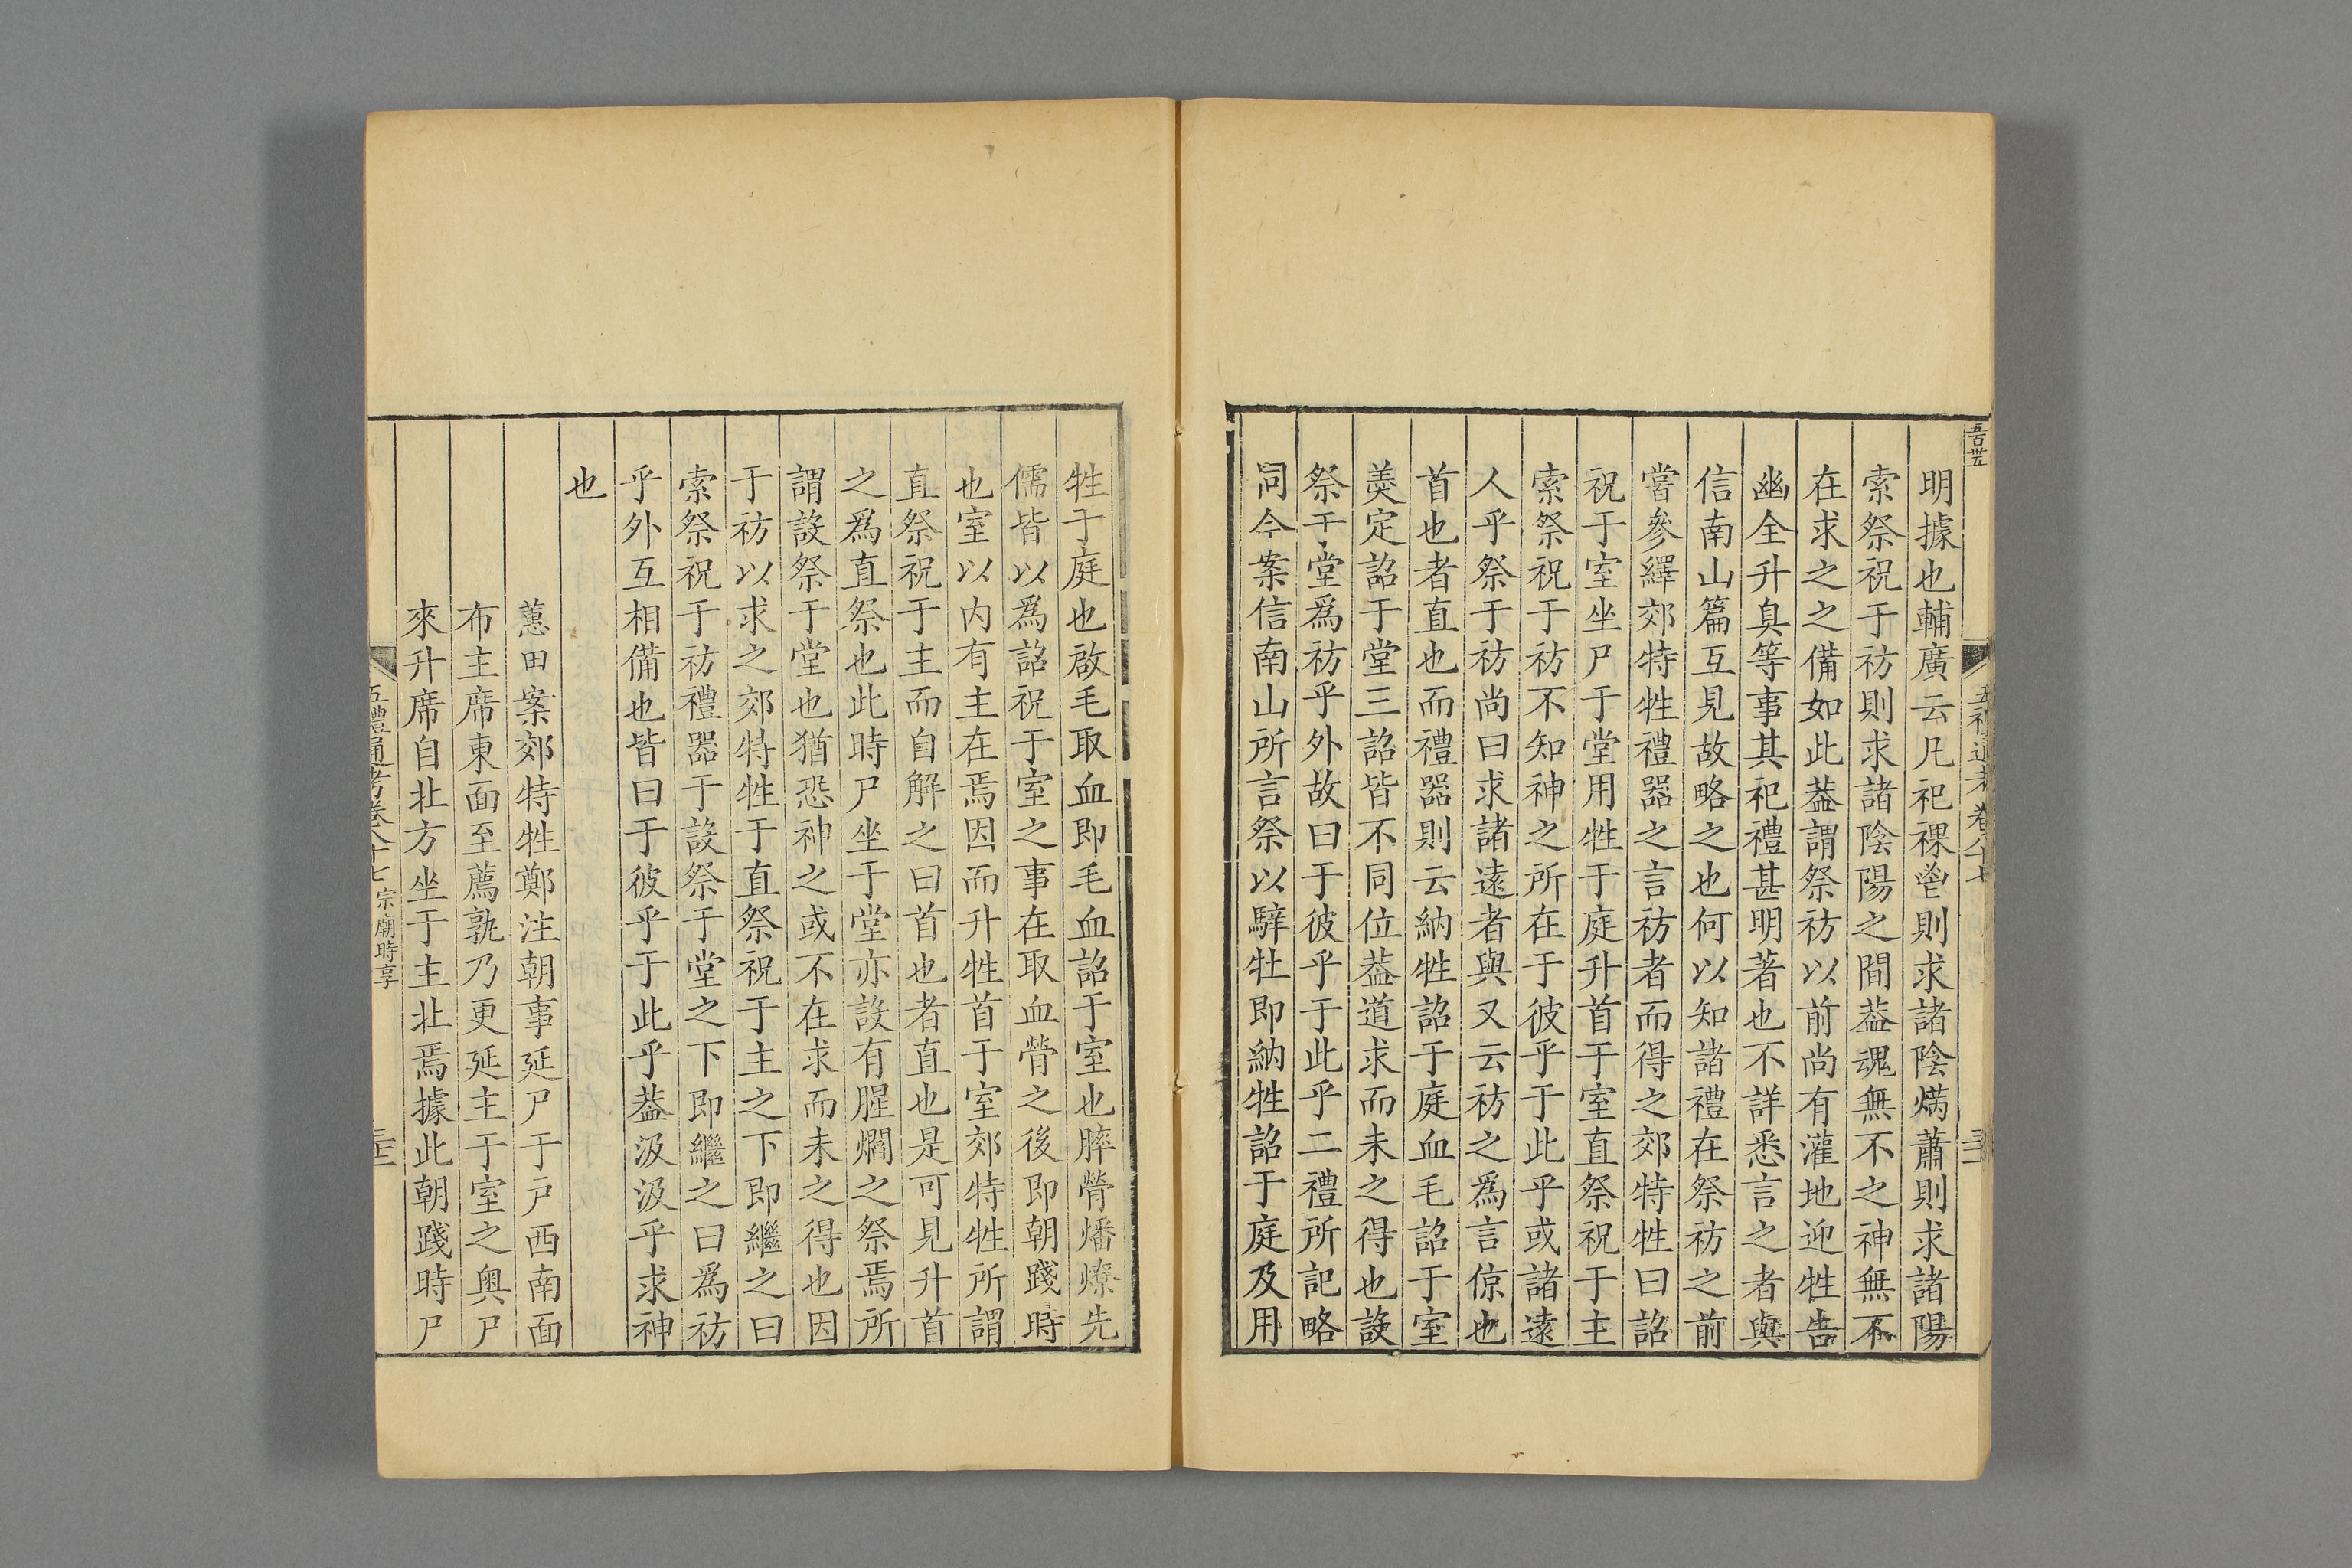 五百卅五
五禮通考卷八十七
三十一
明據也輔廣云凡祀祼鬯則求諸陰焫蕭則求諸陽
索祭祝于祊則求諸陰陽之間葢魂無不之神無不
在求之之備如此葢謂祭祊以前尚有灌地迎牲告
幽全升臭等事其祀禮甚明著也不詳悉言之者與
信南山篇互見故略之也何以知諸禮在祭祊之前
嘗參繹郊特牲禮器之言祊者而得之郊特牲曰詔
祝于室坐尸于堂用牲于庭升首于室直祭祝于主
索祭祝于祊不知神之所在于彼乎于此乎或諸遠
人乎祭于祊尚曰求諸遠者與又云祊之爲言倞也
首也者直也而禮器則云納牲詔于庭血毛詔于室
羮定詔于堂三詔皆不同位葢道求而未之得也設
祭于堂爲祊乎外故曰于彼乎于此乎二禮所記略
同今案信南山所言祭以騂牡即納牲詔于庭及用
牲于庭也啟毛取血即毛血詔于室也膟膋燔燎先
儒皆以爲詔祝于室之事在取血膋之後即朝踐時
也室以内有主在焉因而升牲首于室郊特牲所謂
直祭祝于主而自解之曰首也者直也是可見升首
之爲直祭也此時尸坐于堂亦設有腥爓之祭焉所
謂設祭于堂也猶恐神之或不在求而未之得也因
于祊以求之郊特牲于直祭祝于主之下即繼之曰
索祭祝于祊禮器于設祭于堂之下即繼之曰爲祊
乎外互相備也皆曰于彼乎于此乎葢汲汲乎求神
也
蕙田案郊特牲鄭注朝事延尸于戸西南面
布主席東面至薦孰乃更延主于室之奥尸
來升席自北方坐于主北焉據此朝踐時尸
五禮通考卷八十七 宗廟時享
三十二